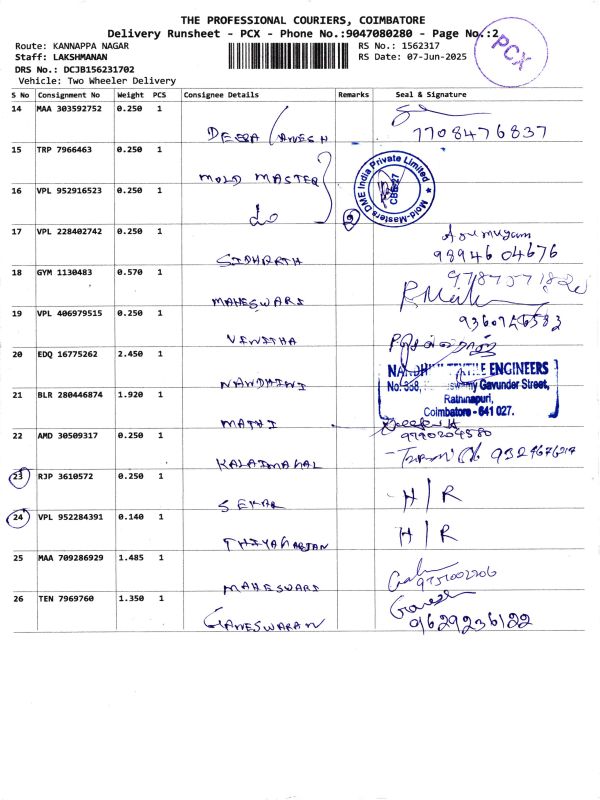 THE PROFESSIONAL COURIERS, COIMBATORE
Delivery Runsheet - PCX - Phone No.:9047080280 - Page No.:2
PCX
Route: KANNAPPA NAGAR
Staff: LAKSHMANAN
RS No.: 1562317
RS Date: 07-Jun-2025
DRS No.: DCJB156231702
Vehicle: Two Wheeler Delivery
S No Consignment No Weight PCS Consignee Details Remarks Seal & Signature
14 MAA 303592752 0.250 1
DEEPA GANESH 7708476837
15 TRP 7966463 0.250 1
MOLD MASTER
Mold-Masters DME India Private Limited
CBE-27
16 VPL 952916523 0.250 1
do
17 VPL 228402742 0.250 1
SIDHARTH Arumugam
98946 04676
18 GYM 1130483 0.570 1
MAHESWARI
19 VPL 406979515 0.250 1
VINITHA
20 EDQ 16775262 2.450 1
NANDHINI
ENGINEERS
Gavunder Street,
Rathinapuri,
Coimbatore - 641 027.
21 BLR 280446874 1.920 1
MATHI
22 AMD 30509317 0.250 1
KALAIMAGAL
23 RJP 3610572 0.250 1
SEKAR H/R
24 VPL 952284391 0.140 1
THIYAGARJAN H/R
25 MAA 709286929 1.485 1
MAHESWARI
26 TEN 7969760 1.350 1
GANESWARAN Ganesh
9629236122